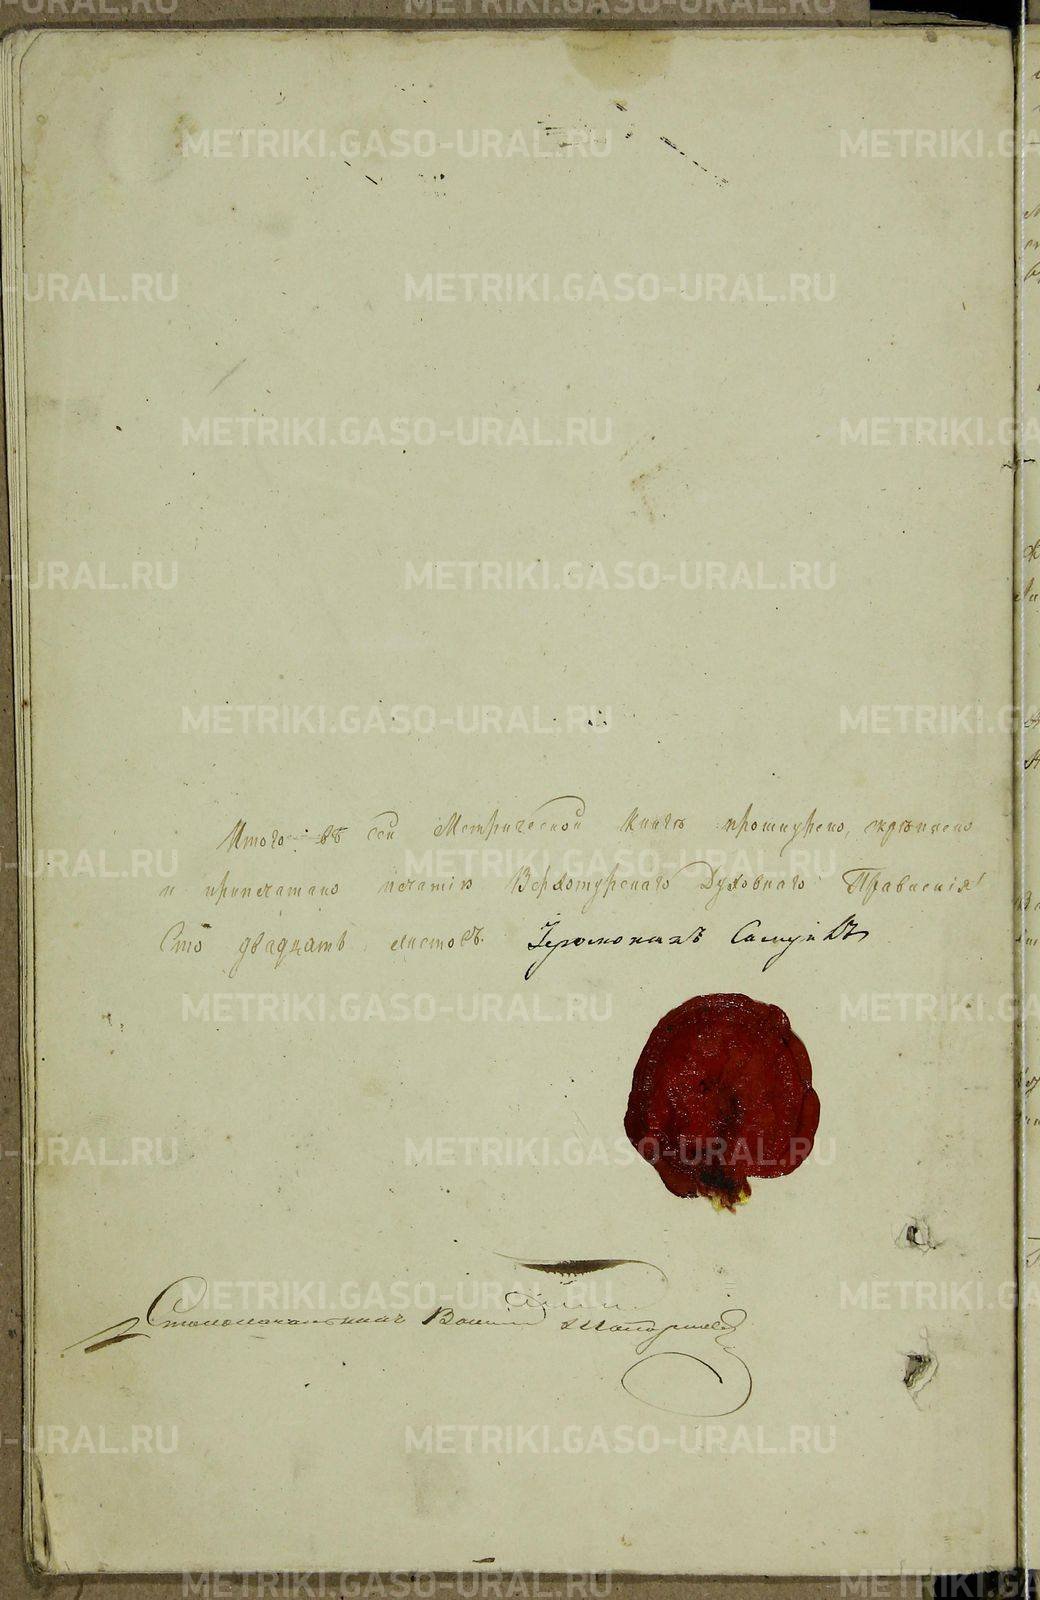 Итого въ сей Метрической Книгѣ прошнурено, скрѣплено
и припечатано печатію Верхотурскаго Духовнаго Правленія
Сто двадцать листовъ. Іеромонахъ Самуилъ
Столоначальникъ Василій
METRIKI.GASO-URAL.RU